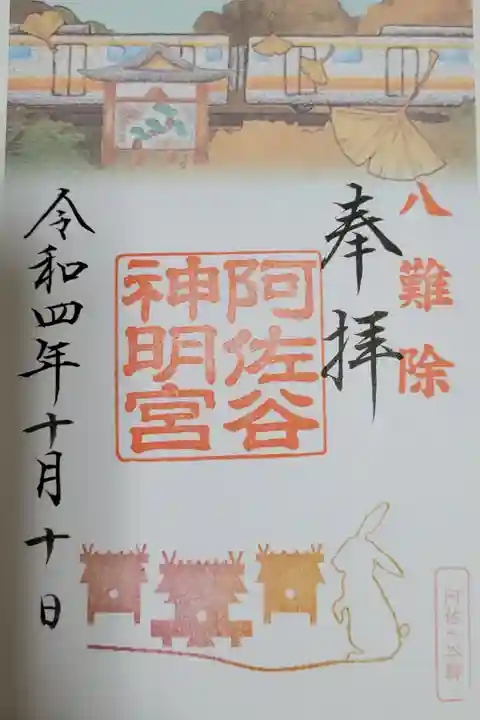 八難除
奉拝
阿佐谷
神明宮
令和四年十月十日